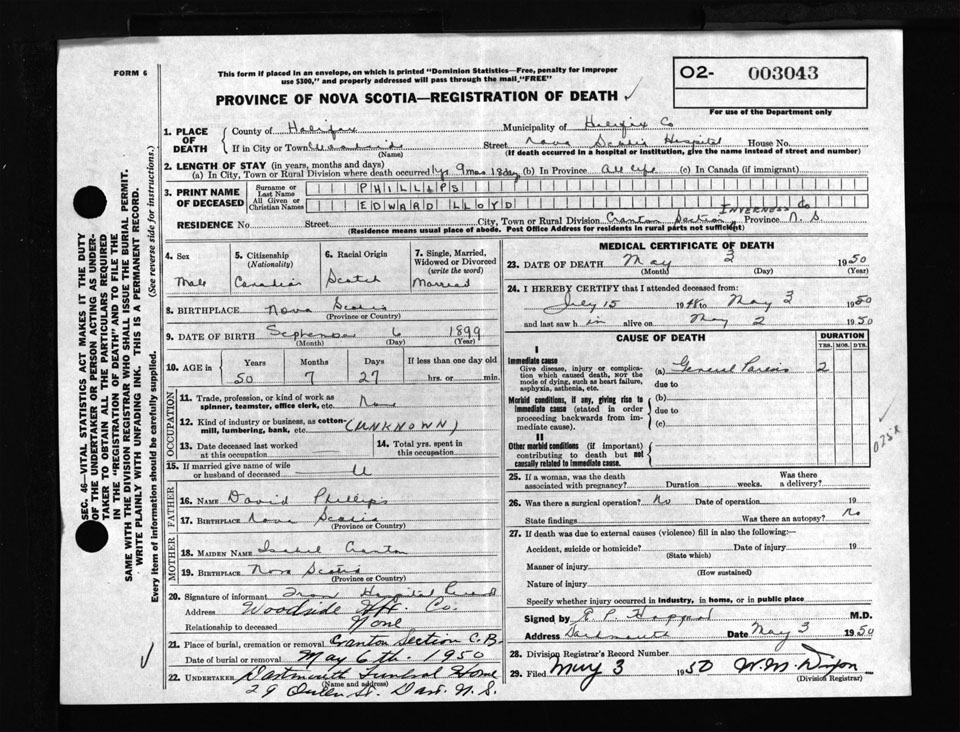 FORM 6
This form if placed in an envelope, on which is printed "Dominion Statistics—Free, penalty for improper
use $300," and properly addressed will pass through the mail, "FREE"
O2- 003043
For use of the Department only
PROVINCE OF NOVA SCOTIA—REGISTRATION OF DEATH ✓
SEC. 46—VITAL STATISTICS ACT MAKES IT THE DUTY
OF THE UNDERTAKER OR PERSON ACTING AS UNDER-
TAKER TO OBTAIN ALL THE PARTICULARS REQUIRED
IN THE "REGISTRATION OF DEATH" AND TO FILE THE
SAME WITH THE DIVISION REGISTRAR WHO SHALL ISSUE THE BURIAL PERMIT.
WRITE PLAINLY WITH UNFADING INK. THIS IS A PERMANENT RECORD.
Every item of information should be carefully supplied. (See reverse side for instructions.)
1. PLACE OF DEATH
County of Halifax Municipality of Halifax Co
If in City or Town Woodside Street Nova Scotia Hospital House No.
(Name) (If death occurred in a hospital or institution, give the name instead of street and number)
2. LENGTH OF STAY (in years, months and days)
(a) In City, Town or Rural Division where death occurred 1 yr 9 mos 18 day (b) In Province All life (c) In Canada (if immigrant)
3. PRINT NAME OF DECEASED
Surname or Last Name PHILLIPS
All Given or Christian Names EDWARD LLOYD
INVERNESS Co
RESIDENCE No. Street City, Town or Rural Division Cranton Section Province N. S.
(Residence means usual place of abode. Post Office Address for residents in rural parts not sufficient)
4. Sex
Male
5. Citizenship (Nationality)
Canadian
6. Racial Origin
Scotch
7. Single, Married, Widowed or Divorced (write the word)
Married
8. BIRTHPLACE Nova Scotia
(Province or Country)
9. DATE OF BIRTH September 6 1899
(Month) (Day) (Year)
10. AGE in Years Months Days If less than one day old
50 7 27 hrs. or min.
OCCUPATION
11. Trade, profession, or kind of work as
spinner, teamster, office clerk, etc. None
12. Kind of industry or business, as cotton-
mill, lumbering, bank, etc. (UNKNOWN)
13. Date deceased last worked
at this occupation
14. Total yrs. spent in
this occupation
15. If married give name of wife
or husband of deceased U
FATHER
16. NAME David Phillips
17. BIRTHPLACE Nova Scotia
(Province or Country)
MOTHER
18. MAIDEN NAME Isabel Cranton
19. BIRTHPLACE Nova Scotia
(Province or Country)
20. Signature of informant From Hospital Record
Address Woodside Hfx. Co.
Relationship to deceased None
21. Place of burial, cremation or removal Cranton Section C.B.
Date of burial or removal May 6th. 1950
22. UNDERTAKER Dartmouth Funeral Home
(Name and address)
29 Queen St. Dart. N. S.
MEDICAL CERTIFICATE OF DEATH
23. DATE OF DEATH May 3 1950
(Month) (Day) (Year)
24. I HEREBY CERTIFY that I attended deceased from:
July 15 1948 to May 3 1950
and last saw h im alive on May 2 1950
CAUSE OF DEATH
DURATION
YRS. MOS. DYS.
I
Immediate cause
Give disease, injury or complica-
tion which caused death, NOT the
mode of dying, such as heart failure,
asphyxia, asthenia, etc.
(a) General Paresis 2
due to
Morbid conditions, if any, giving rise to
immediate cause (stated in order
proceeding backwards from im-
mediate cause).
(b)
due to
(c)
II
Other morbid conditions (if important)
contributing to death but not
causally related to immediate cause.
025x
25. If a woman, was the
death associated with pregnancy? Duration weeks. Was there
a delivery?
26. Was there a surgical operation? No Date of operation 19
State findings Was there an autopsy? No
27. If death was due to external causes (violence) fill in also the following:—
Accident, suicide or homicide? Date of injury 19
(State which)
Manner of injury
(How sustained)
Nature of injury
Specify whether injury occurred in industry, in home, or in public place
Signed by M.D.
Address Dartmouth Date May 3 1950
28. Division Registrar's Record Number
29. Filed May 3 1950 W. M. Dixon
(Division Registrar)